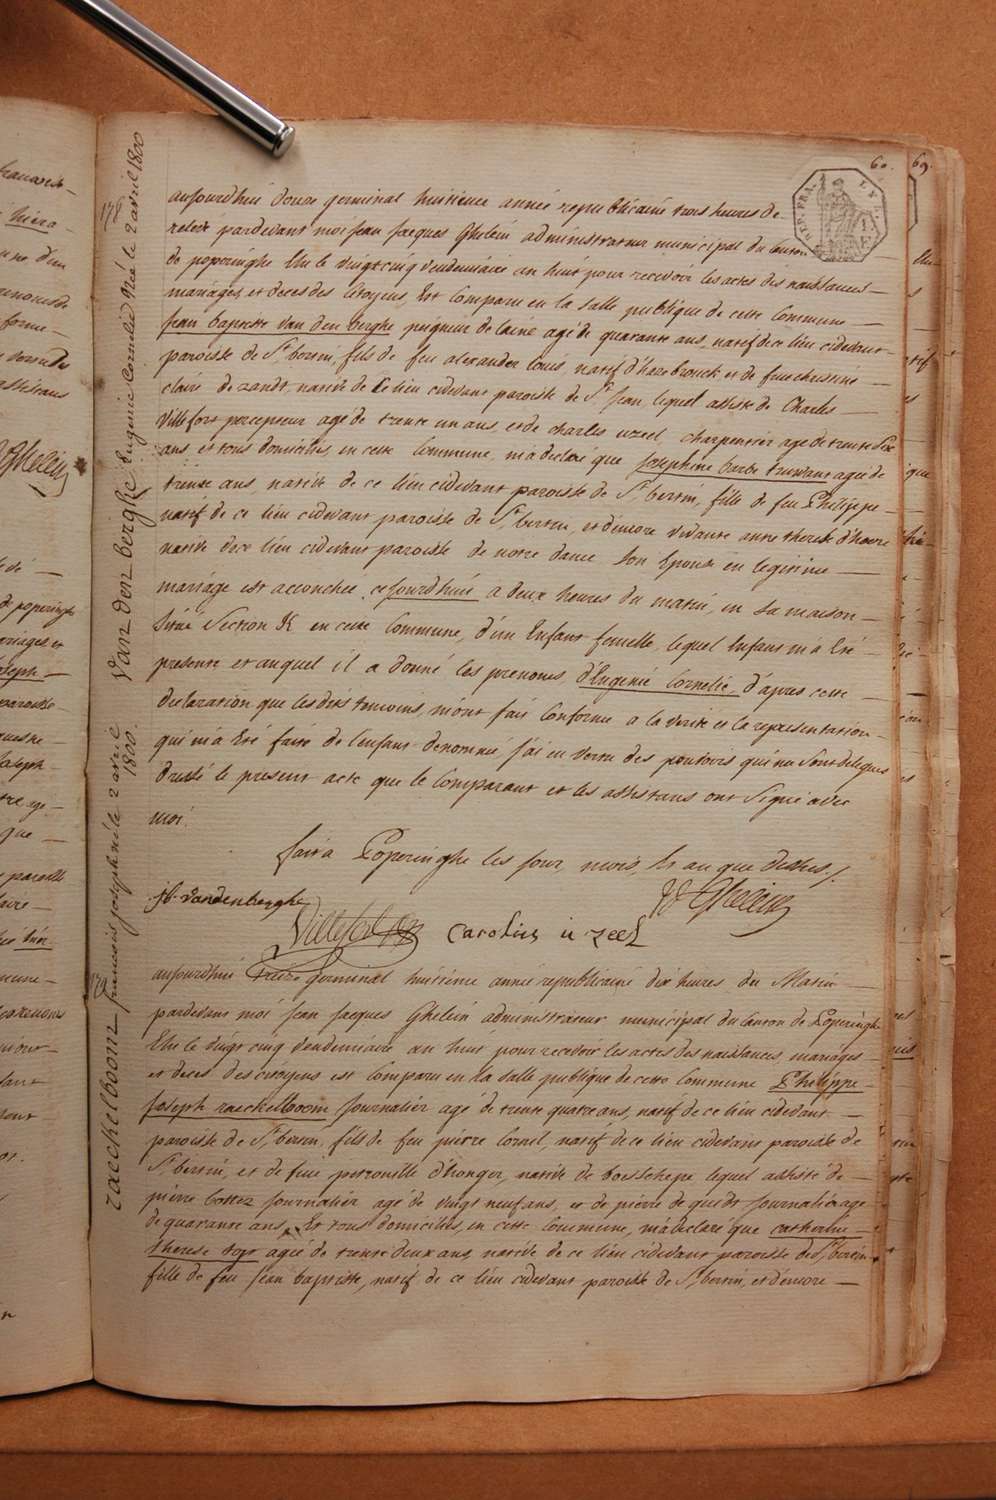 60.
69.
REP. FRA.
178
Van den berghe Eugenie Cornelie Née le 2 avril 1800
aujourdhui douze germinal huitieme année republicaine trois heures de
relevé pardevant moi Jean Jacques Ghelein administrateur municipal du Canton
de poperinghe Elu le vingt cinq vendemiaire an huit pour recevoir les actes des naissances
mariages et deces des Citoyens, Est Comparu en la salle publique de cette Commune
Jean baptiste Van den berghe peigneur de laine agé de quarante ans, natif de ce lieu cidevant
paroisse de St bertin, fils de feu alexander Louis, natif d'hazebrouck et de feue christine
claire de zandt, native de Ce lieu cidevant paroisse de St Jean, lequel assisté de Charles
Villefort percepteur agé de trente un ans, et de charles uzeel, charpentier agé de trente Six
ans, et tous domiciliés, en cette Commune, m'a declaré que Josephine barbe truwant agée de
trente ans, native de ce lieu cidevant paroisse de St bertin, fille de feu Philippe
natif de ce lieu cidevant paroisse de St bertin, et d'encore vivante anne therese d'hoore
native de ce lieu cidevant paroisse de notre dame Son Epouse en legitime
mariage est accouchée cejourdhui a deux heures du matin, en sa maison
située Section K en cette Commune, d'un Enfant femelle, lequel Enfant m'a Eté
presenté et auquel il a donné les prenoms, d'Eugenie Cornelie, d'après cette
declaration que les dits temoins, m'ont fait Conforme a la verité et la representation
qui m'a Eté faite de l'enfant denommé j'ai en vertu des pouvoirs qui me sont delegués
dressé le present acte que le Comparant et les assistans ont Signé avec
moi.
fait a Poperinghe les jour, mois, Et an que dessus./.
jb. vandenberghe
Villefort
Carolus uzeel
JJ Ghelein
179
zaeckelboom francois joseph né le 2 avril 1800.
aujourdhui treize germinal huitieme année republicaine dix heures du Matin
pardevant moi Jean Jacques Ghelein administrateur municipal du Canton de Poperinghe
Elu le vingt cinq vendemiaire an huit pour recevoir les actes des naissances, mariages
et deces des citoyens est Comparu en la salle publique de cette Commune Philippe
Joseph zaeckelboom Journalier agé de trente quatre ans, natif de ce lieu cidevant
paroisse de St bertin, fils de feu pierre Cornil, natif de ce lieu cidevant paroisse de
St bertin, et de feue petronille d'honger, native de boesschepe lequel assisté de
pierre Cottez Journalier agé de vingt neuf ans, et de pierre de quidt Journalier agé
de quarante ans, Et tous domiciliés, en cette Commune, m'a declaré que catherine
therese top agée de trente deux ans, native de ce lieu cidevant paroisse de St bertin
fille de feu Jean baptiste, natif de ce lieu cidevant paroisse de St bertin, et d'encore